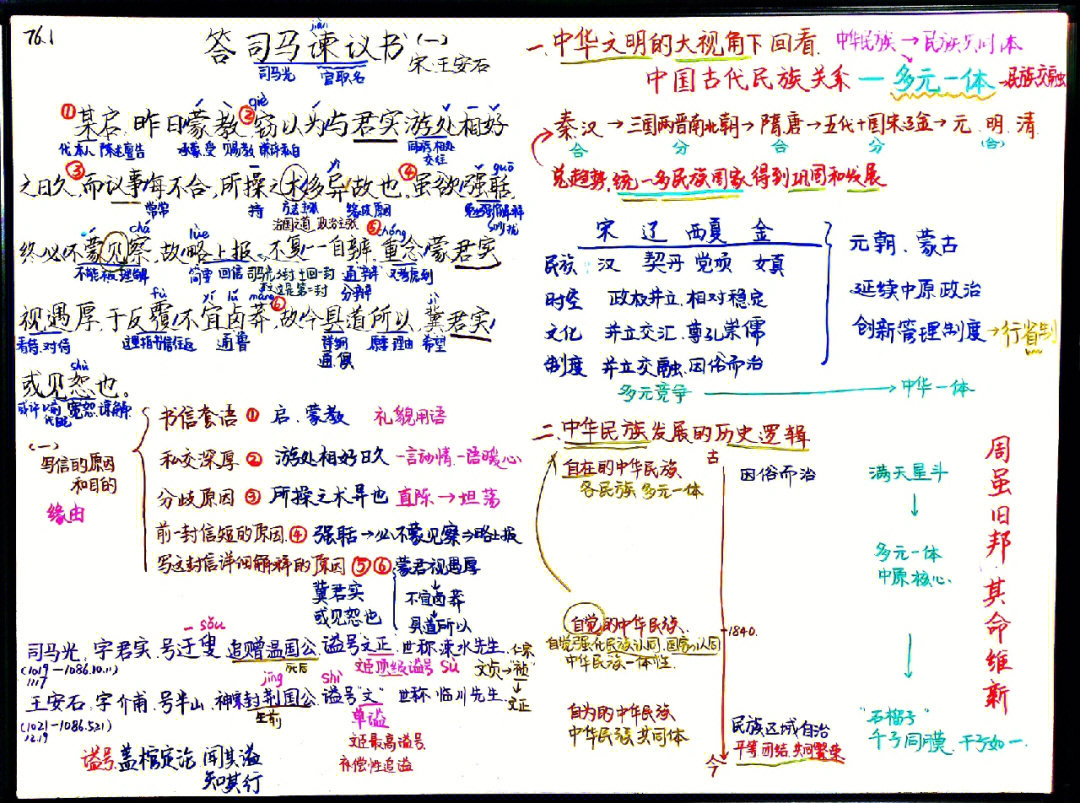 76.1
jiàn
答司马谏议书(一)
宋.王安石
司马光 官职名
qiè
①某启.昨日蒙教.②窃认为与君实游处相好
代本人 陈述.告 承蒙.受 赐教 谦称私自 同游相处 交往
yì guō
之日久,③而议事每不合,所操之术多异故也.④虽欲强聒,
常常 持 方法主张 缘故原因 勉强解释
治国之道.政治主张
chá lüè zhòng
终必不蒙见察,故略上报,不复一一自辨.⑤重念蒙君实
不能被理解 简单 回信 通"辩" 又考虑到
分辨
fù yí lǔ mǎng jì
视遇厚,于反覆不宜卤莽,⑥故今具道所以,冀君实
看待.对待 这里指书信往返 通鲁 详细 原序 理由 希望
通俱
shù
或见恕也。
或许 宽恕.谅解
(一)
写信的原因
和目的
缘由
书信套语 ① 启、蒙教 礼貌用语
私交深厚 ② 游处相好日久 一言动情.一语暖心
分歧原因 ③ 所操之术异也 直陈→坦荡
前一封信短的原因.④ 强聒→必不蒙见察→略上报
写这封信详细解释的原因 ⑤⑥
蒙君视遇厚
冀君实 不宜卤莽
或见恕也 具道所以
sǒu
司马光、字君实、号迂叟 追赠温国公、谥号文正、世称涑水先生.
(1019—1086.10.11) 死后 文臣顶级谥号 sù 文贞→"祯"
11.17 仁宗
文正
jīng shì
王安石、字介甫、号半山、神宗封荆国公、谥号"文" 世称临川先生
(1021—1086.5.21) 生前 单谥
12.19
文臣最高谥号.
补偿性追谥
谥号.盖棺定论 闻其谥
知其行
一.中华文明的大视角下回看.
中华民族→民族共同体
中国古代民族关系 — 多元一体 →民族交融
秦汉→三国两晋南北朝→隋唐→五代十国宋辽金→元.明.清.
合 分 合 分 (合)
总趋势.统一多民族国家得到巩固和发展
宋 辽 西夏 金
民族 汉 契丹 党项 女真
时经 政权并立.相对稳定
文化 并立交汇.尊孔崇儒
制度 并立交融.因俗而治
元朝、蒙古
延续中原政治
创新管理制度→行省制
多元竞争 → 中华一体
二.中华民族发展的历史逻辑
古
自在的中华民族.
各民族多元一体
因俗而治
满天星斗
多元一体
中原核心
自觉的中华民族.
1840.
自觉强化民族认同.国家认同
中华民族一体性.
自为的中华民族
中华民族共同体
民族区域自治
平等团结.共同繁荣
今
"石榴子"
千子同膜 千子如一.
周虽旧邦其命维新